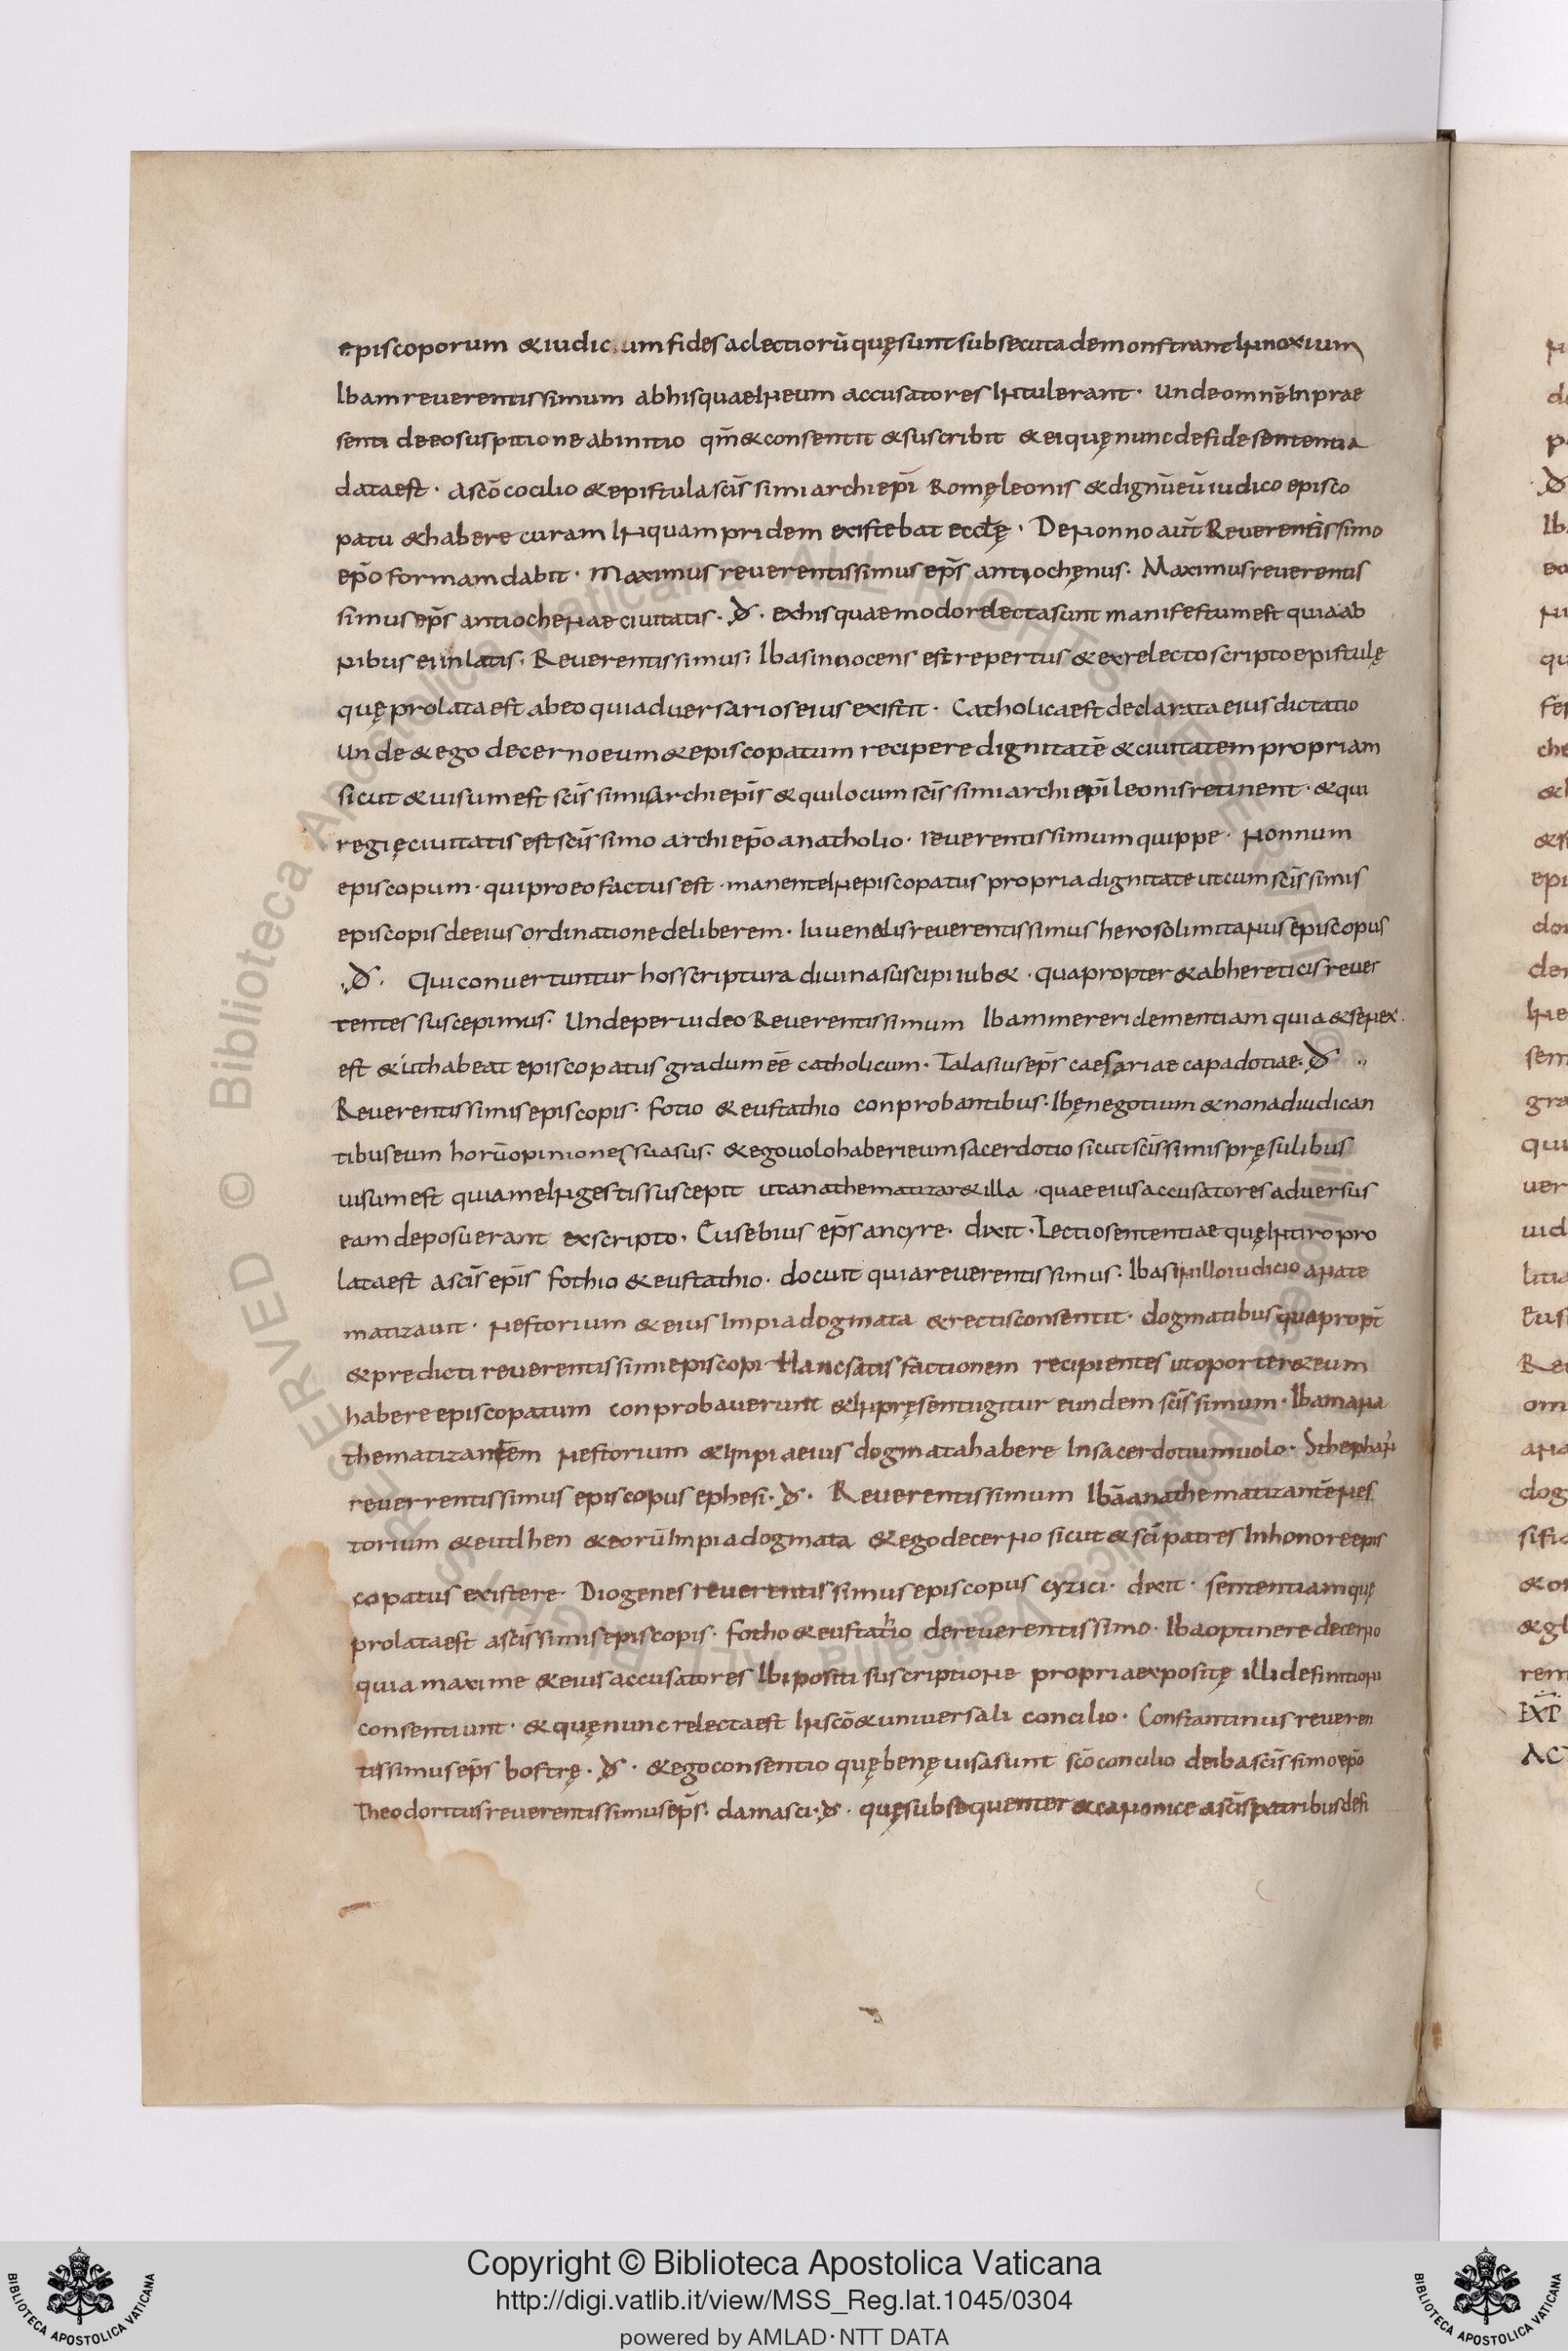 episcoporum & iudicium fides ac lectiorū quę sunt subsecuta demonstrant Innoxium
Ibam reuerentissimum ab his quae In eum accusatores Intulerant · unde omnē In prae
senti de eo suspitione ab initio qm̄ & consentit & suscribit & ei quę nunc de fide sententia
data est · A scō cocilio & epistula scīssimi archiepī Romę leonis & dignū eū iudico episco
patu & habere curam In quam pridem existebat eccłę · De Nonno aūt Reuerentissimo
ep̄o formam dabit · Maximus reuerentissimus ep̄s antiochęnus · Maximus reuerentis
simus ep̄s antiochenae ciuitatis · đ · ex his quae modo relecta sunt manifestum est quia ab
nibus ei inlatis · Reuerentissimus · Ibas innocens est repertus & ex relecto scripto epistulę
quę prolata est ab eo qui aduersarios eius existit · Catholica est declarata eius dictatio
Unde & ego decerno eum & episcopatum recipere dignitatē & ciuitatem propriam
sicut & uisum est scīssimis archiepīs & qui locum scīssimi archiepī leonis retinent · & qui
regię ciuitatis est scīssimo archiep̄o anatholio · reuerentissimum quippe · Nonnum
episcopum · qui pro eo factus est · manente In episcopatus propria dignitate ut cum scīssimis
episcopis de eius ordinatione deliberem · Iuuenalis reuerentissimus herosolimitanus episcopus
· đ · Qui conuertuntur hos scriptura diuina suscipi iub& · quapropter & ab hereticis reuer
tentes suscepimus · Unde peruideo Reuerentissimum Ibam mereri clementiam quia & senex ·
est & ut habeat episcopatus gradum eē catholicum · Talasius ep̄s caesariae capadotiae · đ
Reuerentissimis episcopis · fotio & eustathio conprobantibus · Ibę negotium & non adiudican
tibus eum horū opiniones suasus · & ego uolo haberi eum sacerdotio sicut scīssimis pręsulibus
uisum est quia me In gestis suscepit ut anathematizar& illa · quae eius accusatores aduersus
eam deposuerant ex scripto · Eusebius ep̄s ancyre · dixit · Lectio sententiae quę In tiro pro
lata est a scīs epīs fothio & eustathio · docuit quia reuerentissimus · Ibas in illo iudicio anate
matizauit · Nestorium & eius Impia dogmata & rectis consentit · dogmatibus quapropt̄
& predicti reuerentissimi episcopi Hanc satisfactionem recipientes ut oporter& eum
habere episcopatum conprobauerunt & In pręsenti igitur eundem scīssimum · Ibam ana
thematizantem Nestorium & Inpia eius dogmata habere In sacerdotium uolo · Stephan̄
reuerrentissimus episcopus ephesi · đ · Reuerentissimum Ibā anathematizantē Nes
torium & euticħen & eorū Impia dogmata & ego decerno sicut & scī patres In honore epis
copatus existere Diogenes reuerentissimus episcopus cyzici · dixit · sententiam quę
prolata est a scīssimis episcopis · fotho & eustatħio de reuerentissimo · Iba optinere decerno
quia maxime & eius accusatores Ibi positi suscriptione propria expositę illi definitioni
consentiunt · & quę nunc relecta est In scō & uniuersali concilio · Constantinus reueren
tissimus ep̄s bostrę · đ · & ego consentio quę benę uisa sunt scō concilio de iba scīssimo ep̄o
Theodoritus reuerentissimus ep̄s · damasci · đ · quę subsequenter & canonice a scīs patribus defi
Copyright © Biblioteca Apostolica Vaticana
http://digi.vatlib.it/view/MSS_Reg.lat.1045/0304
powered by AMLAD·NTT DATA
BIBLIOTECA APOSTOLICA VATICANA
BIBLIOTECA APOSTOLICA VATICANA